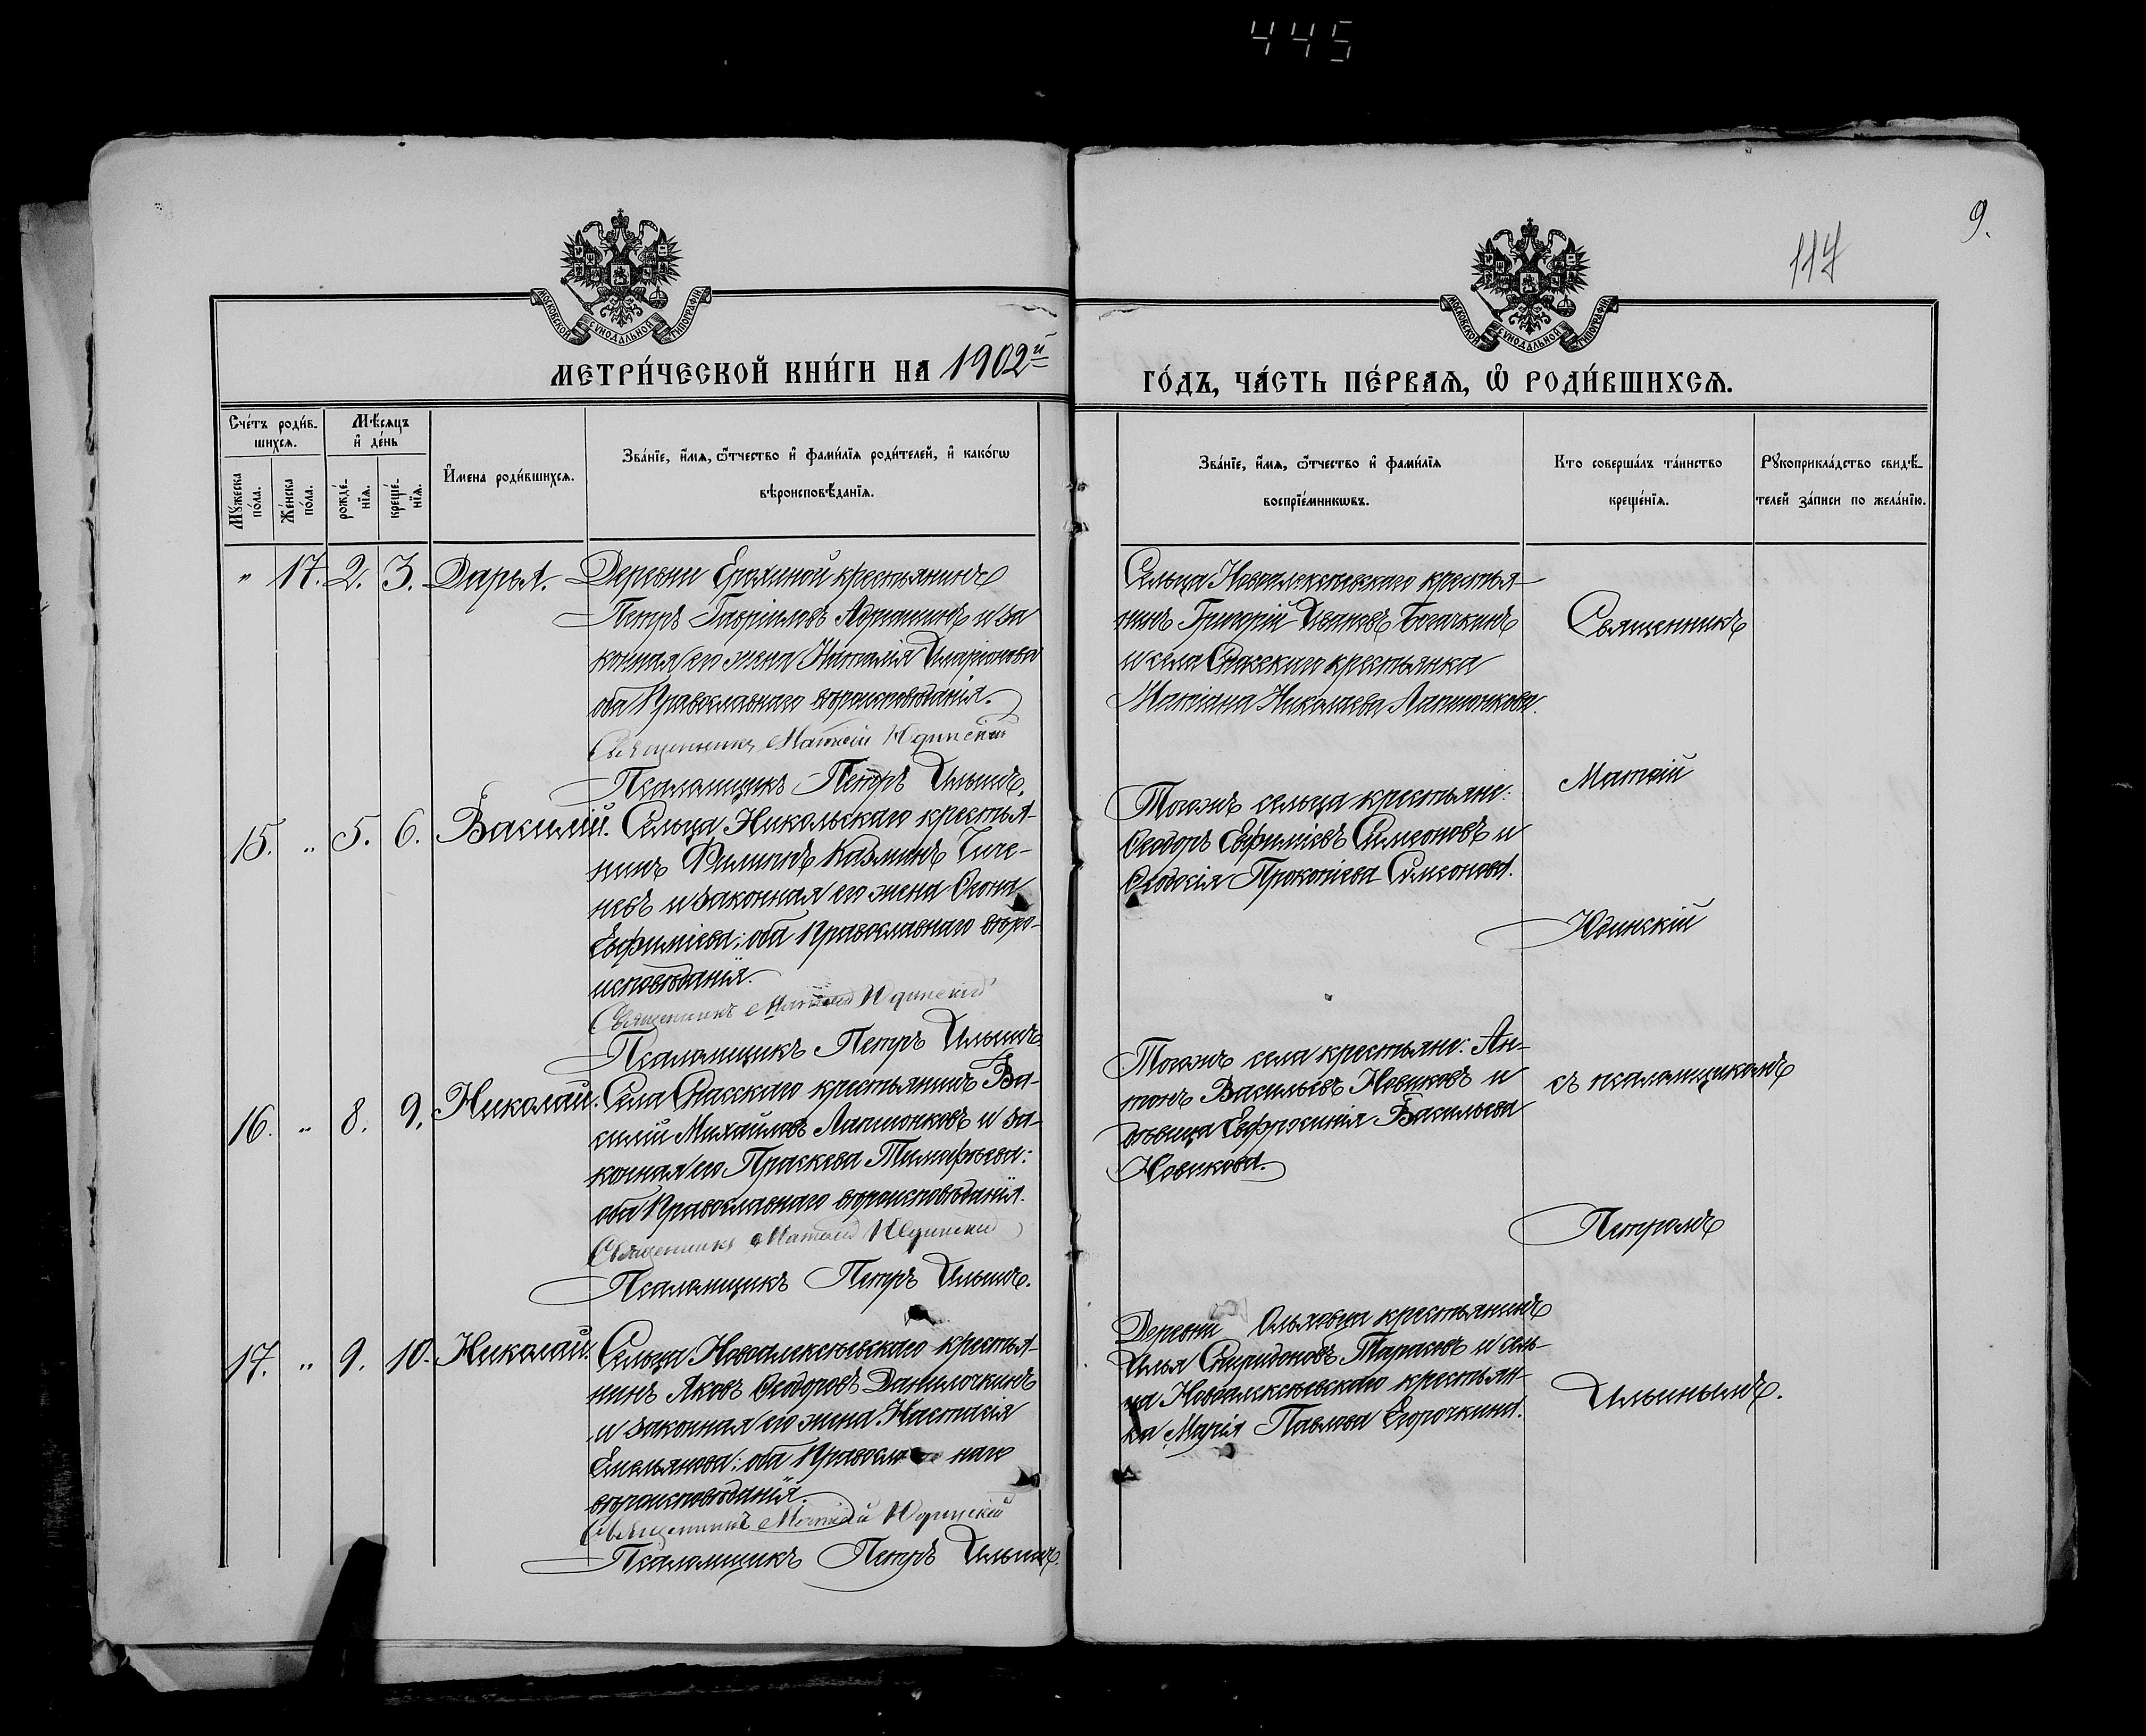 445
9.
117
МОСКОВСКОЙ СѴНОДАЛЬНОЙ ТИПОГРАФІИ
МОСКОВСКОЙ СѴНОДАЛЬНОЙ ТИПОГРАФІИ
МЕТРИ́ЧЕСКОЙ КНИ́ГИ НА 1902й
ГО́ДЪ, ЧА́СТЬ ПЕ́РВАѦ, Ѡ҆ РОДИ́ВШИХСѦ.
Сче́тъ роди́в-
шихсѧ.
Мꙋжеска по́ла.
Же́нска по́ла.
Мѣ́сѧцъ
и҆ де́нь
рожде́-нїѧ.
креще́-нїѧ.
И҆мена роди́вшихсѧ.
Зва́нїе, и҆́мѧ, ѻ҆́тчество и҆ фами́лїѧ роди́телей, и҆ како́гѡ
вѣроисповѣ́данїѧ.
Зва́нїе, и҆́мѧ, ѻ҆́тчество и҆ фами́лїѧ
воспрїе́мникѡвъ.
Кто соверша́лъ та́инство
креще́нїѧ.
Рꙋкоприкла́дство свидѣ́-
телей за́писи по жела́нїю.
" 17. 2. 3. Дарья. Деревни крестьянинъ
Петръ Гавріиловъ и за
конная его жена Наталія Иларіонова
оба Православнаго вѣроисповѣданія.
Священникъ Матѳій Юдинскій
Псаломщикъ Петръ Ильинъ.
Сельца Новоалексѣевскаго крестья-
нинъ Григорій Ивановъ и села Спасскаго крестьянка
Татіана Николаева Лапшонкова.
15. " 5. 6. Василій. Сельца Никольскаго крестья-
нинъ Филиппъ Козминъ Чиче-
невъ и законная его жена
Евфиміева; оба Православнаго вѣро-
исповѣданія.
Священникъ Матѳій Юдинскій
Псаломщикъ Петръ Ильинъ.
Тогожъ сельца крестьяне:
Ѳеодоръ Евфиміевъ Симеоновъ и
Ѳеодосія Прокопіева Симеонова.
16. " 8. 9. Николай. Села Спасскаго крестьянинъ Ва-
силій Михайловъ Лапшонковъ и за-
конная его Праскева Тимофѣева:
оба Православнаго вѣроисповѣданія.
Священникъ Матѳій Юдинскій
Псаломщикъ Петръ Ильинъ.
Тогожъ села крестьяне: Ан-
тонъ Васильевъ Новиковъ и
дѣвица Евфросинія Васильева
Новикова.
17. " 9. 10. Николай. Сельца Новоалексѣевскаго крестья-
нинъ Яковъ Ѳеодоровъ Данилочкинъ
и законная его жена Настасія
Емельянова; оба Православнаго
вѣроисповѣданія.
Священникъ Матѳій Юдинскій
Псаломщикъ Петръ Ильинъ.
Деревни Ольховца крестьянинъ
Илья Спиридоновъ Тарасовъ и сель-
ца Новоалексѣевскаго крестьян-
ка Марія Павлова Егорочкина.
Священникъ
Матѳій
Юдинскій
съ псаломщикомъ
Петромъ
Ильинымъ.